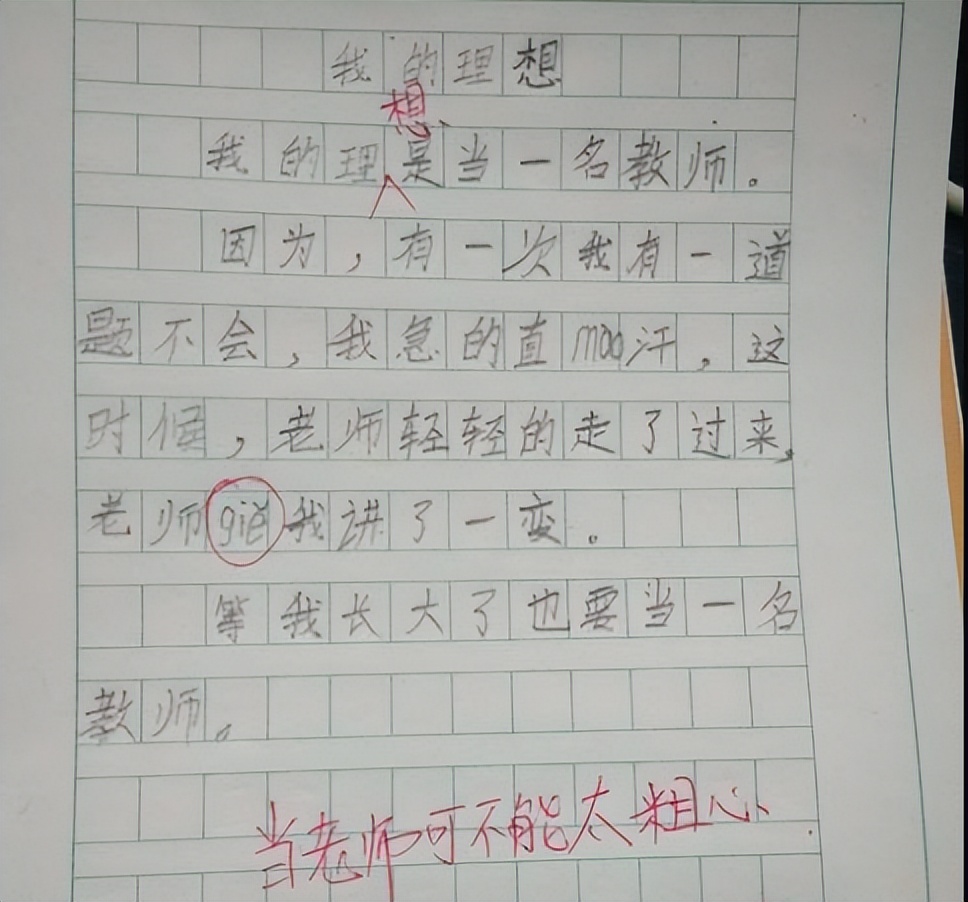 我的理想
想
我的理是当一名教师。
因为，有一次我有一道
题不会，我急的直mao汗，这
时候，老师轻轻的走了过来，
老师giě我讲了一变。
等我长大了也要当一名
教师。
当老师可不能太粗心